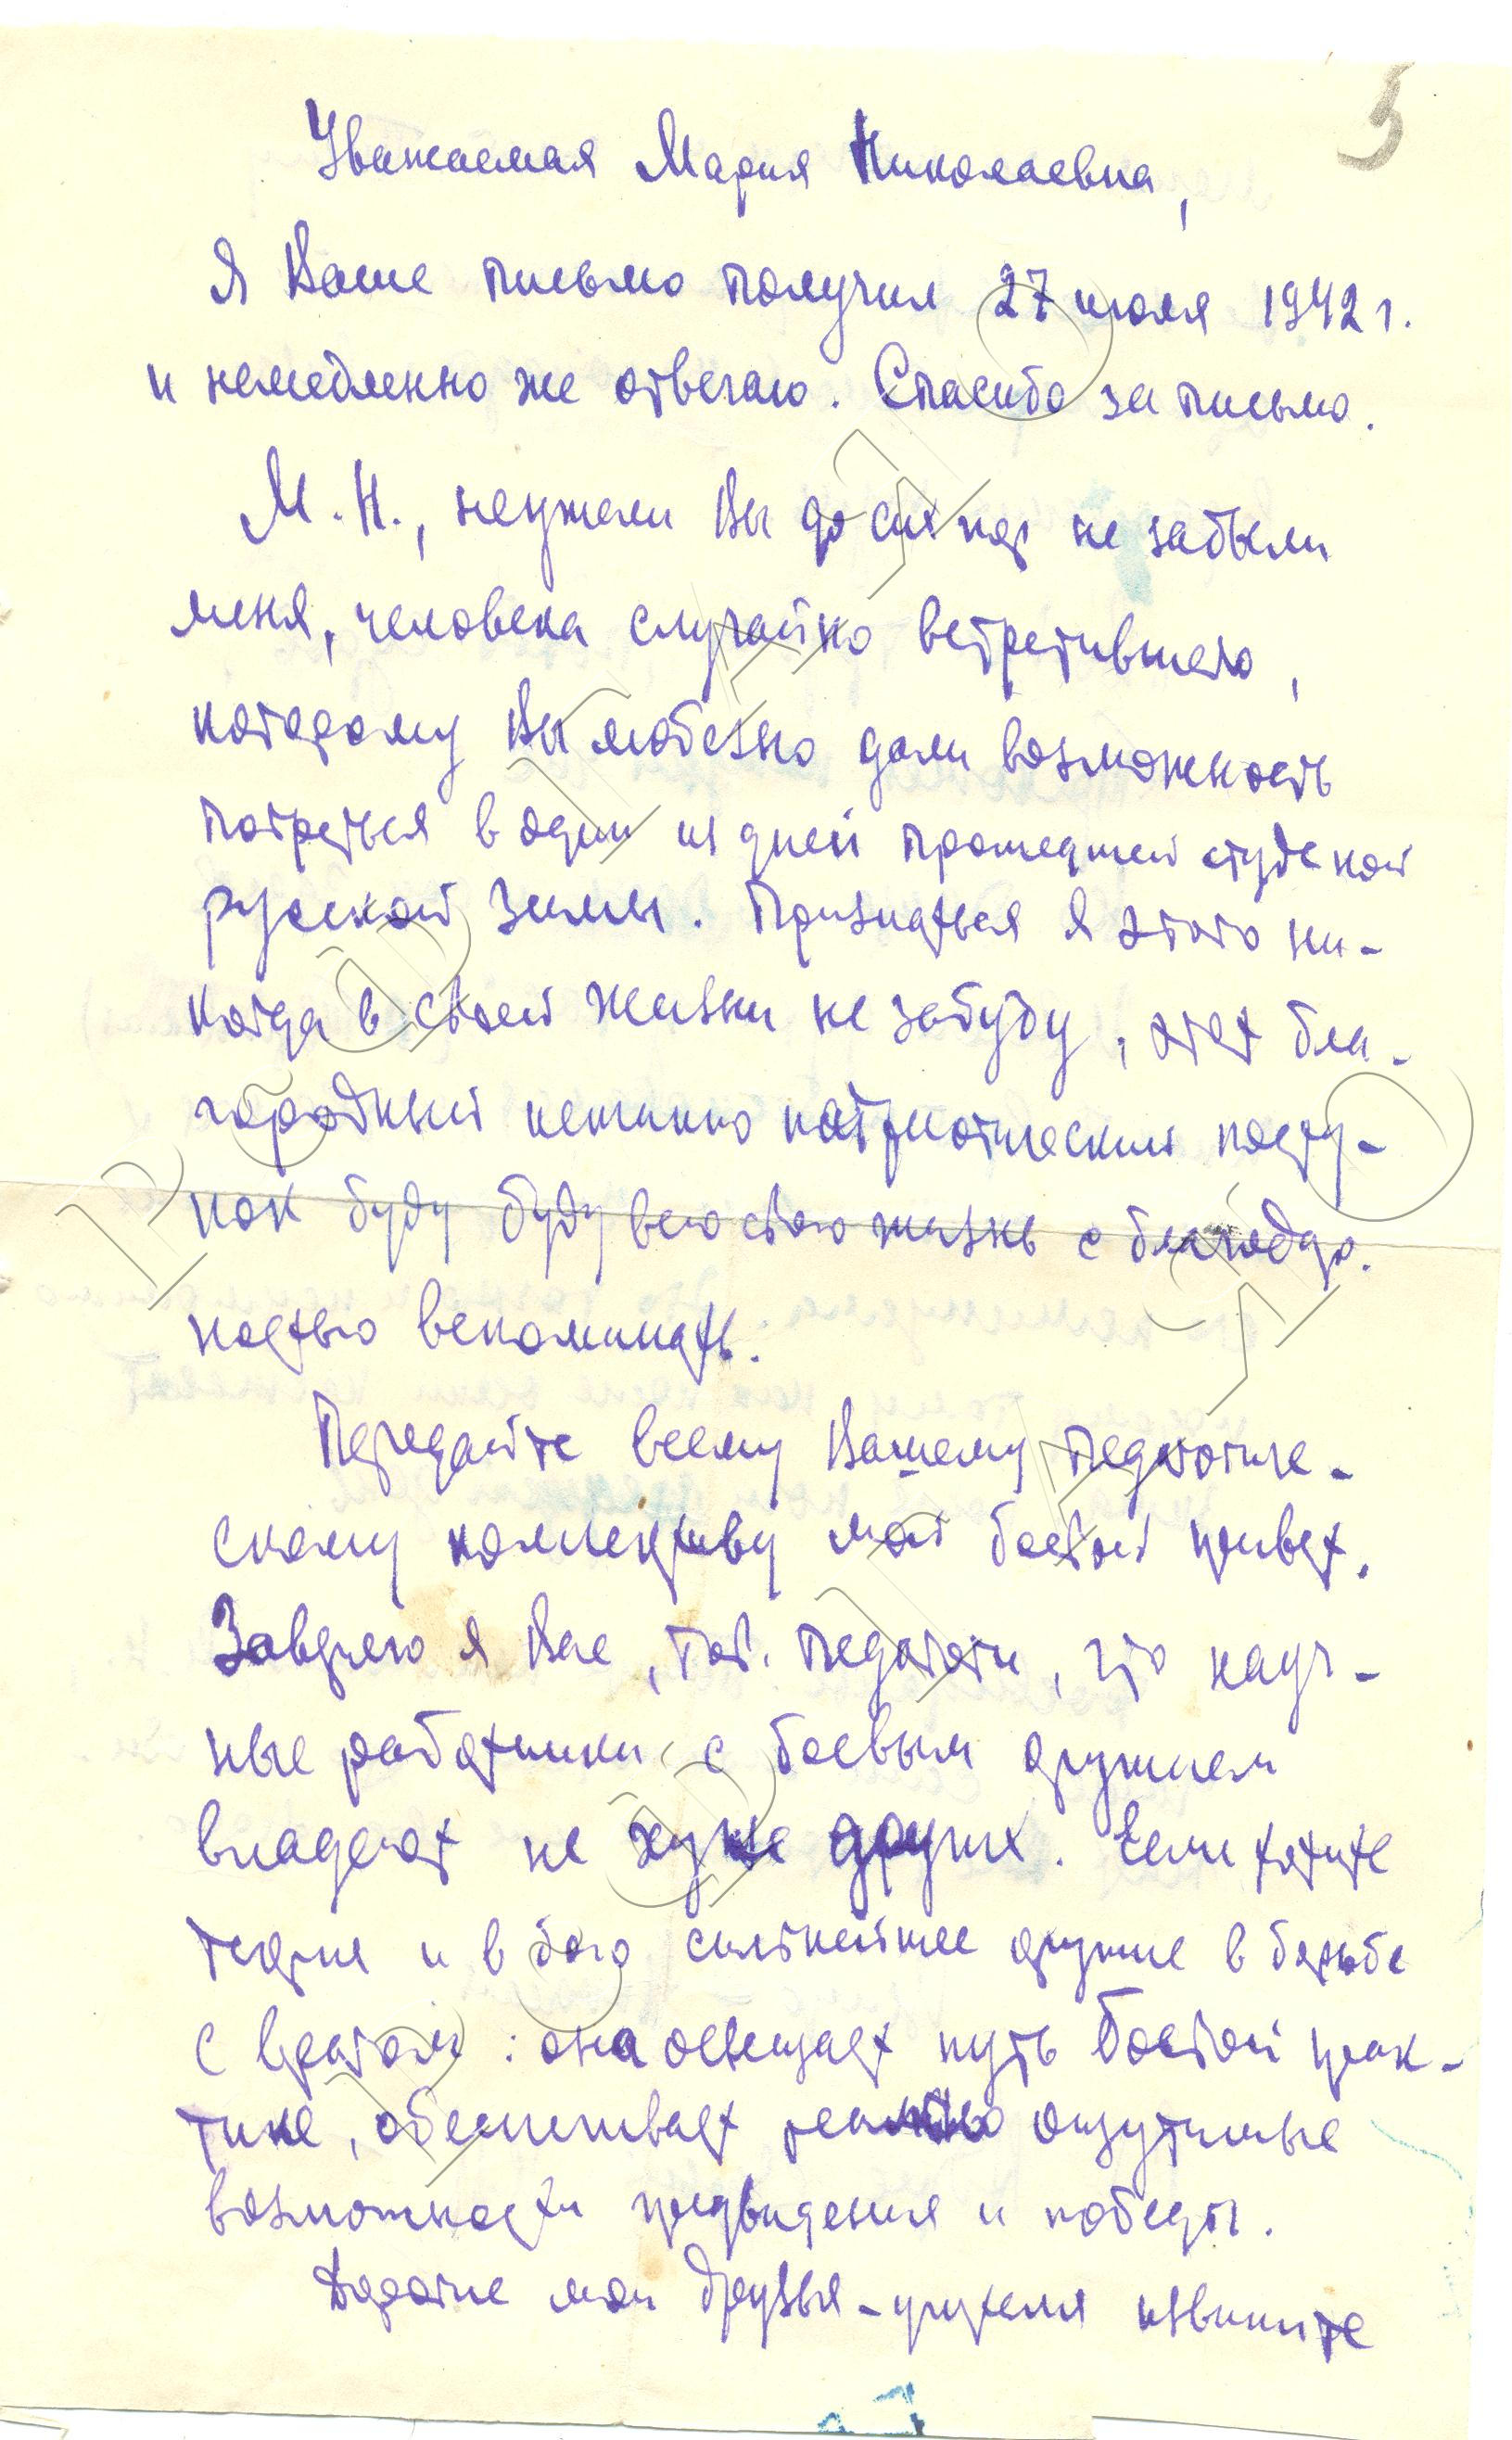 5
Уважаемая Мария Николаевна,
Я Ваше письмо получил 27 июля 1942 г.
и немедленно же отвечаю. Спасибо за письмо.
М. Н., неужели Вы до сих пор не забыли
меня, человека случайно встретившего,
которому Вы любезно дали возможность
погреться в один из дней прошедшей студеной
русской зимы. Признаться я этого ни-
когда в своей жизни не забуду, этот бла-
городный истинно патриотический посту-
пок буду буду всю свою жизнь с благодар.
ностью вспоминать.
Передайте всему Вашему педагогиче-
скому коллективу мой боевой привет.
Заверяю я Вас, тов. педагоги, что науч-
ные работники с боевым оружием
владеют не хуже других. Если хотите
теория и в бою сильнейшее оружие в борьбе
с врагом: она освещает путь боевой прак-
тике, обеспечивает реально ощутимые
возможности предвидения и победы.
Дорогие мои друзья-учителя извините
РОСДИГАЛО